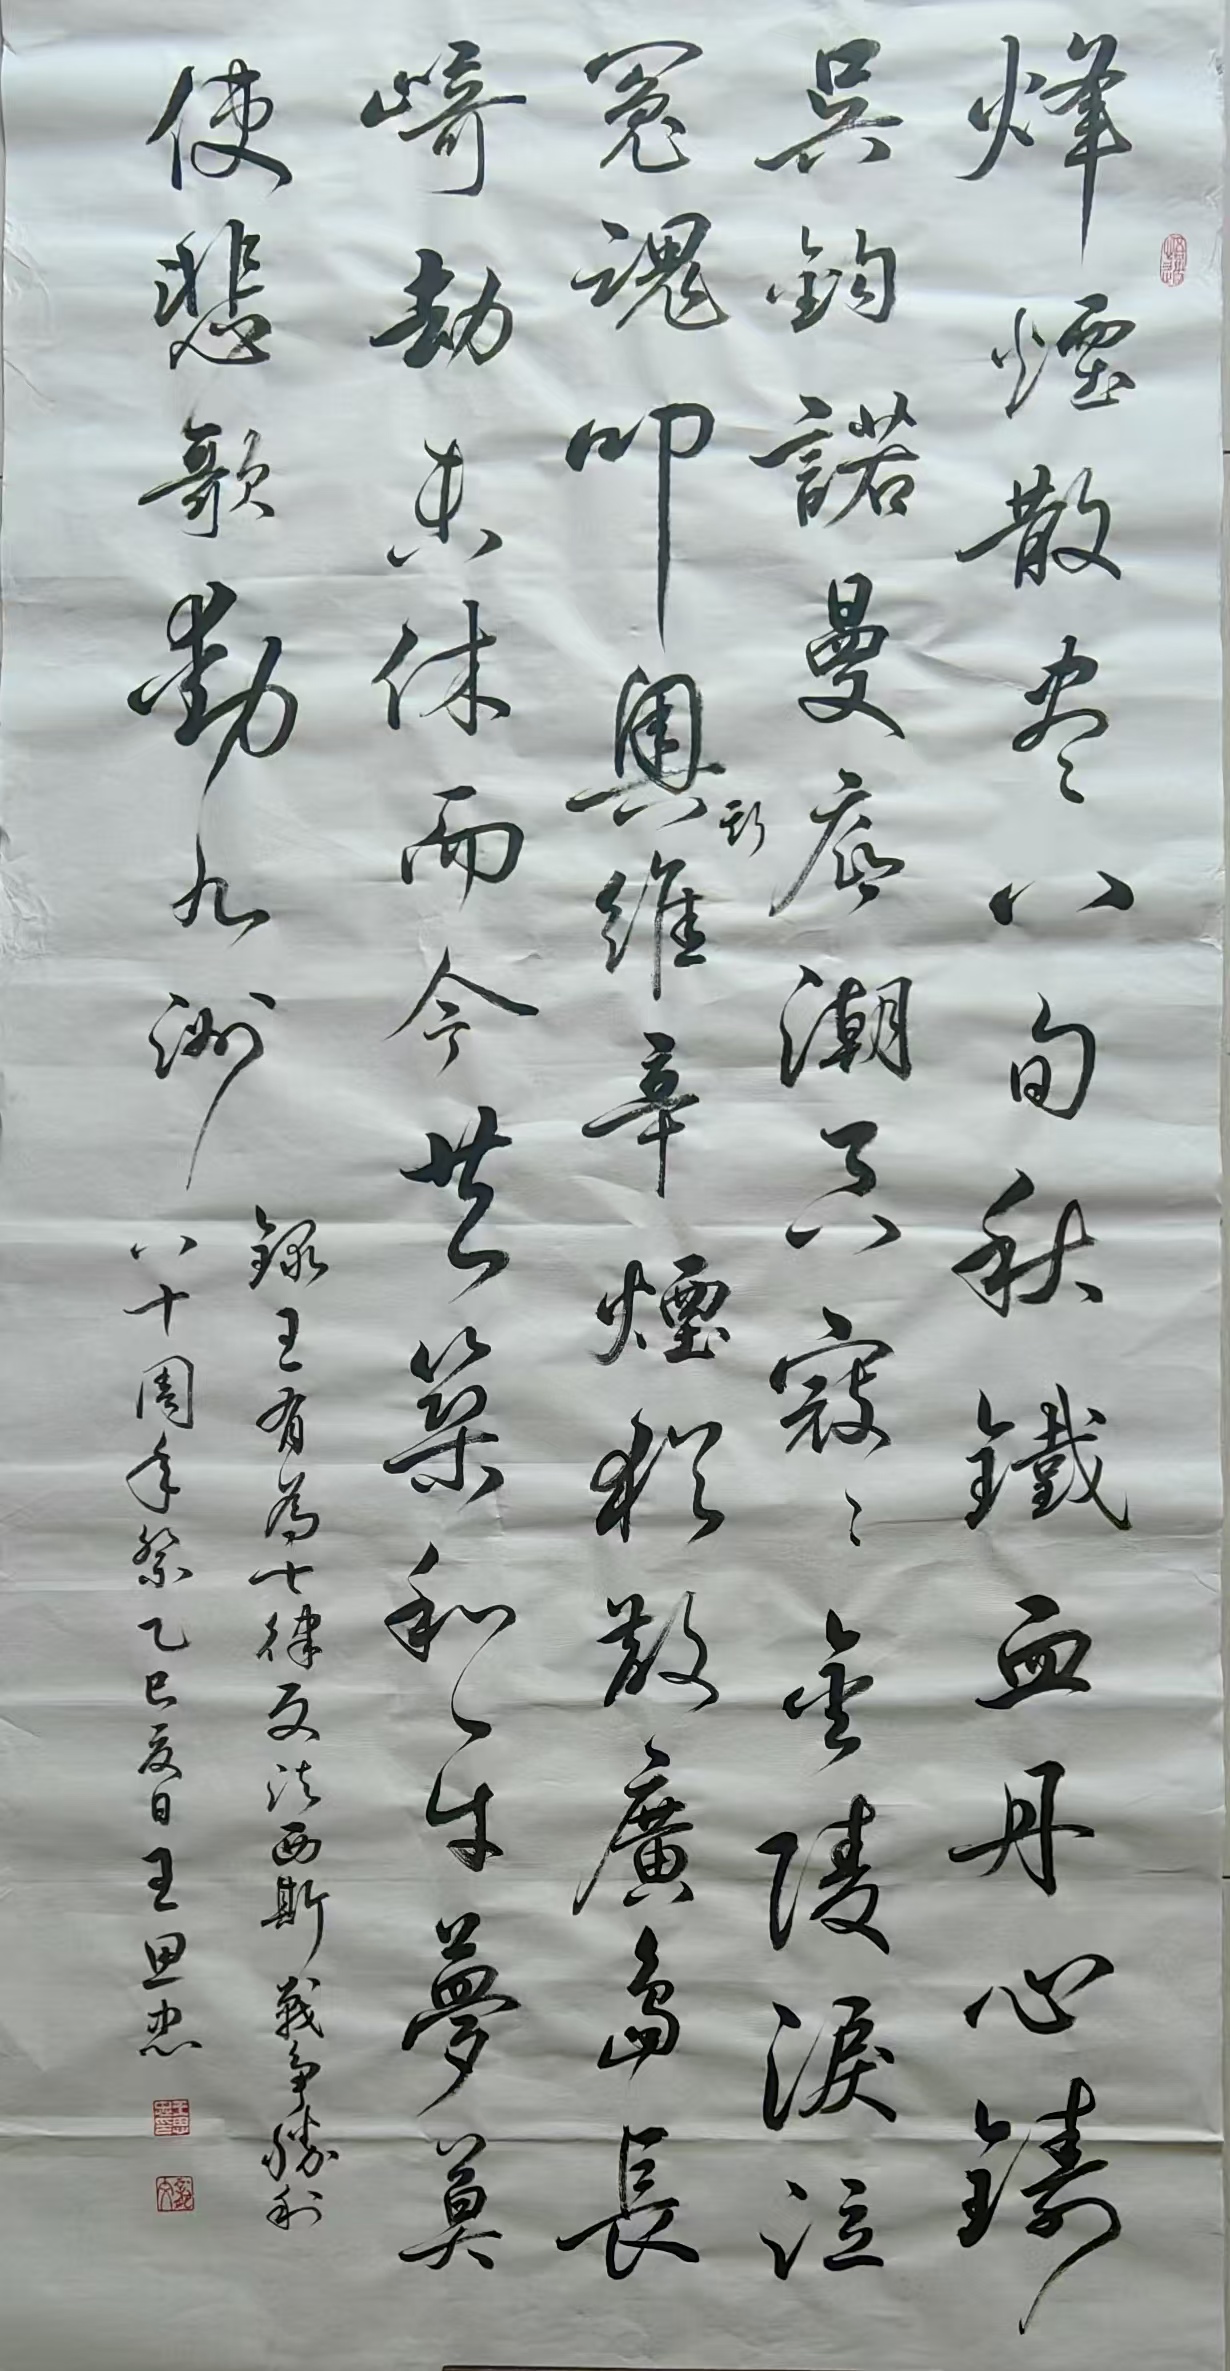 烽煙散尽八旬秋鐵血丹心鑄
吳鈎諾曼底潮吞寇〻金陵淚泣
冤魂叩奧斯維辛煙猶散廣島長
崎劫未休而今共築和平夢莫
使悲歌動九洲
錄王有為七律反法西斯戰爭勝利
八十周年祭乙巳夏日王思忠